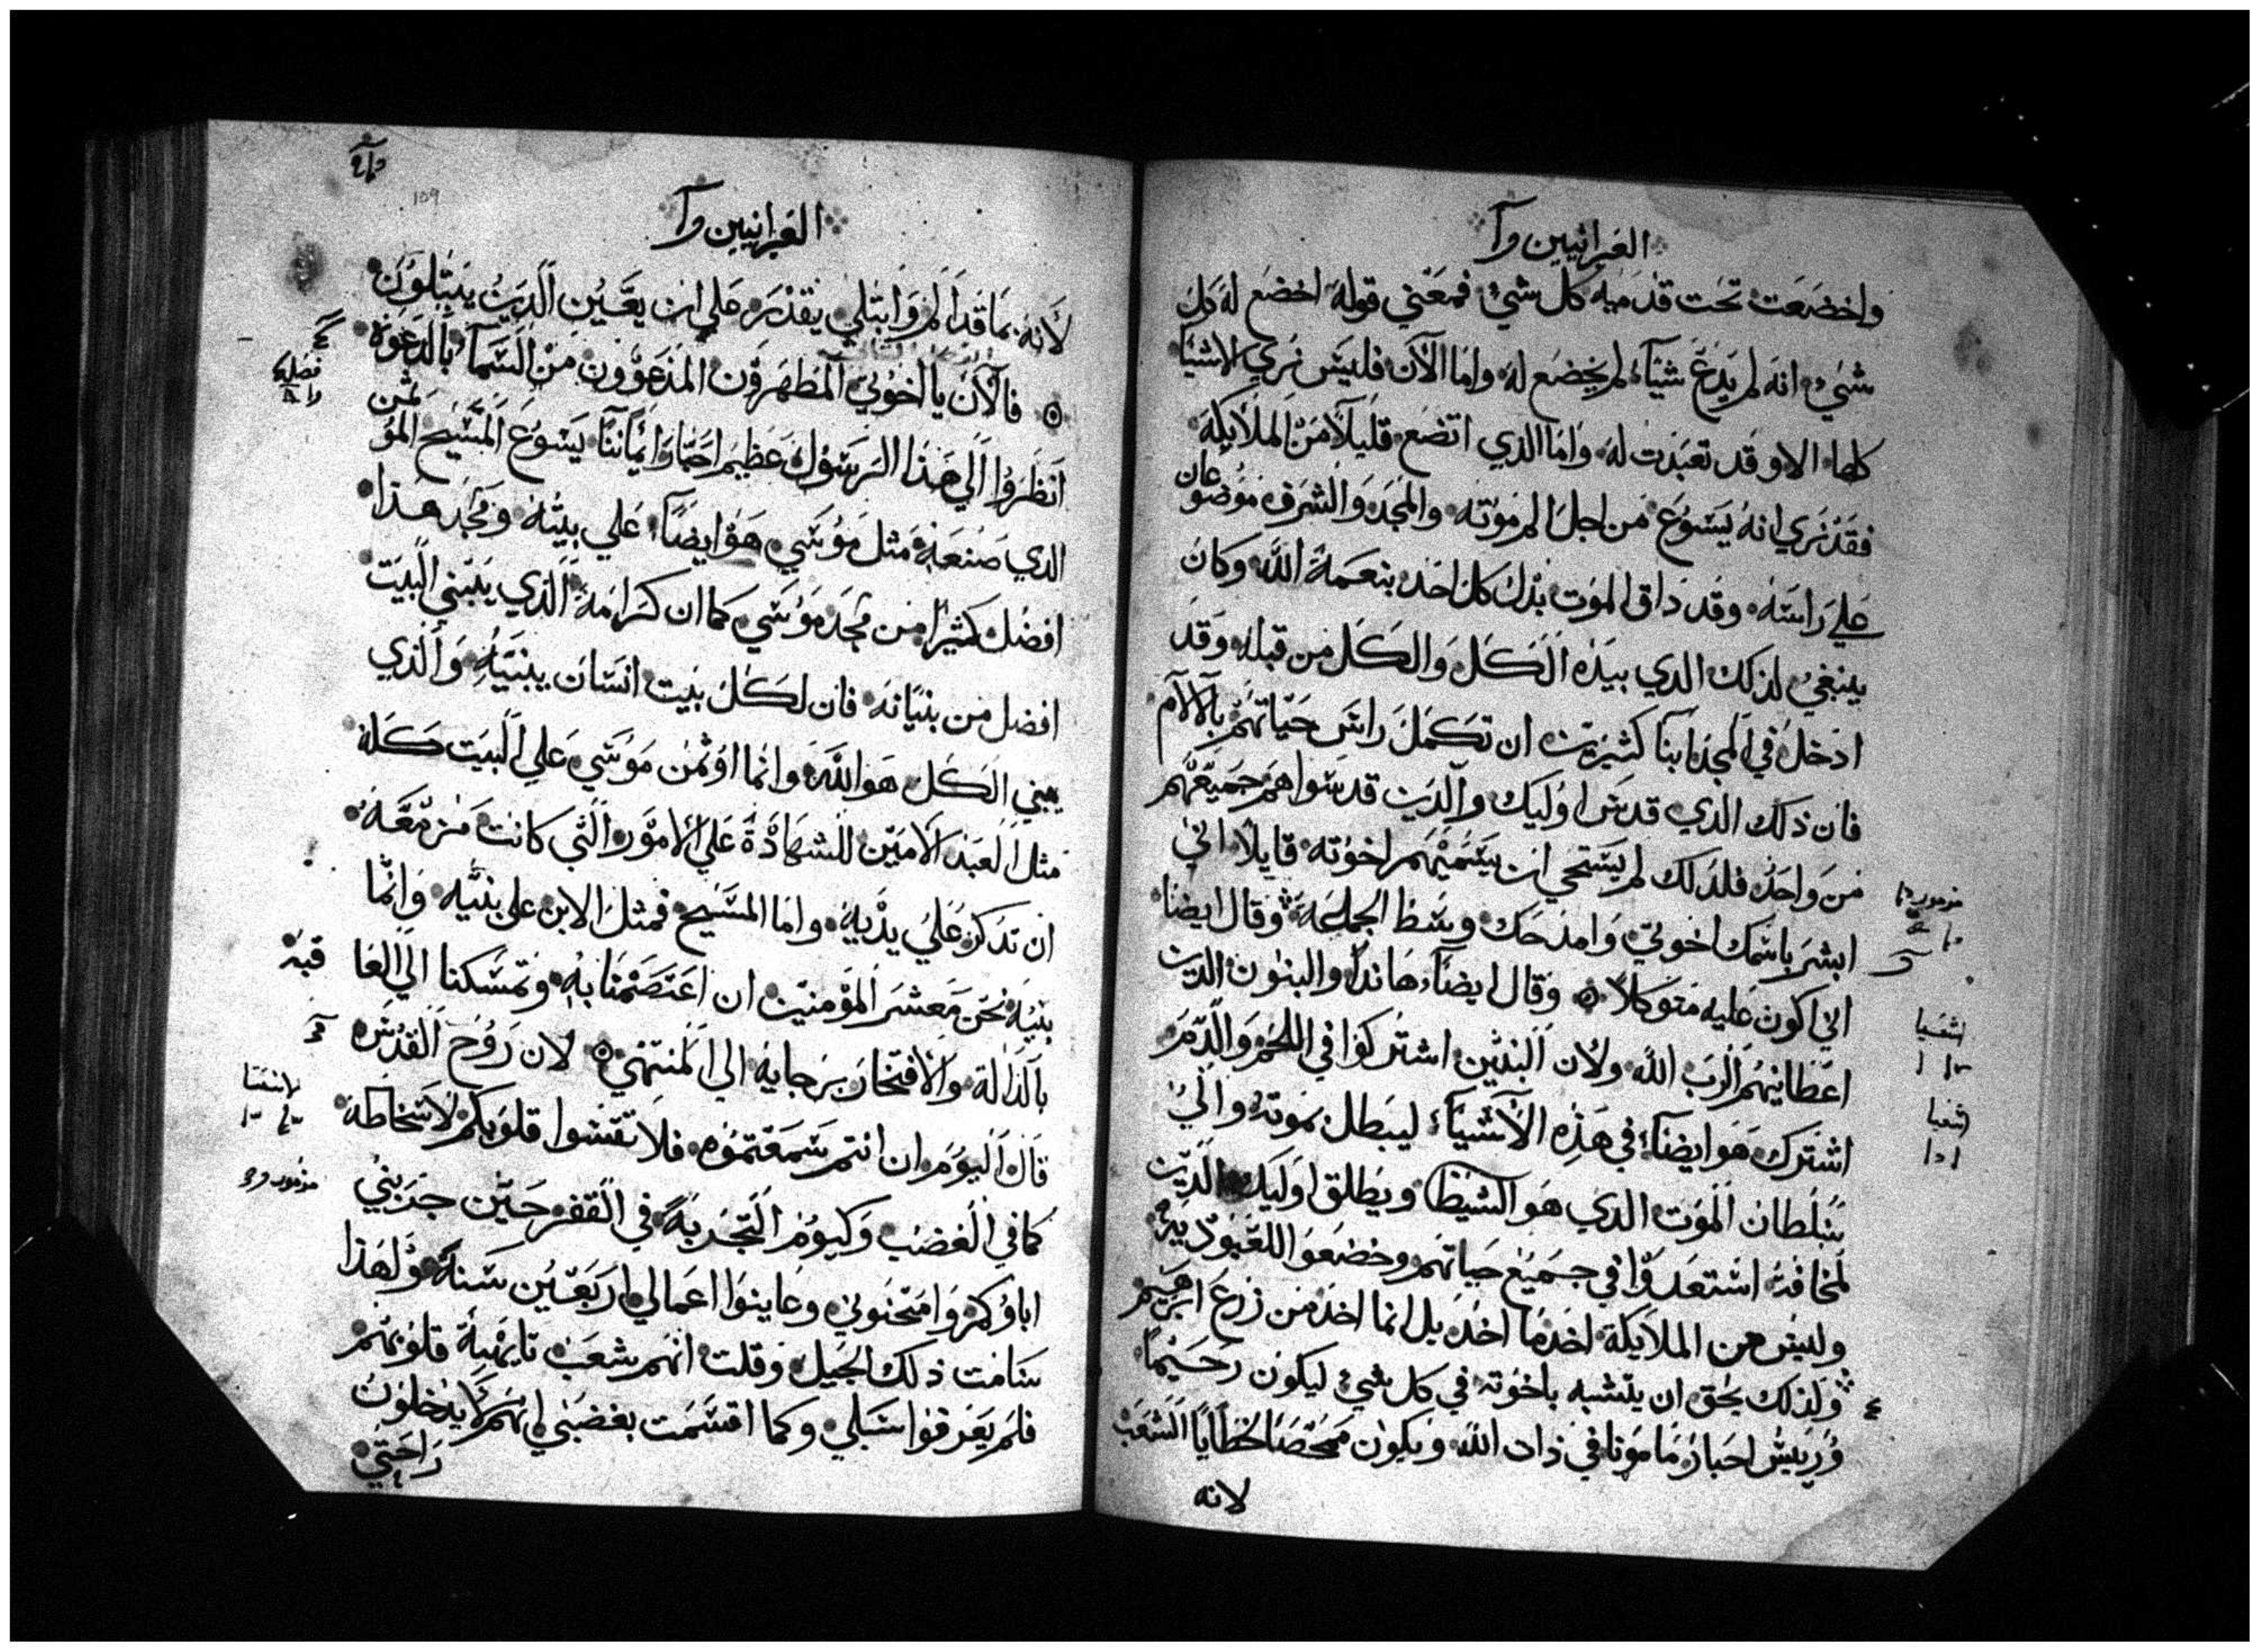 العبرانيين
واخضعت تحت قدميه كل شي فمعني قوله اخضع له كل
شي انه لم يدع شيآء لم يخضع له واما الآن فليس نري الاشيآ
كلها الا وقد تعبدت له واما الذي اتضع قليلآ من الملايكة
فقد نري انه يسوع من اجل الم موته والمجد والشرف موضوعان
علي راسه وقد ذاق الموت بدل كل احد بنعمة الله وكان
ينبغي لذلك الذي بيده الكل والكل من قبله وقد
ادخل في المجد ابنآ كثيرين ان تكمل راس حياتهم بالآلآم
فان ذلك الذي قدس اوليك والدين قدسوا هم جميعهم
من واحد فلذلك لم يستحي ان يسميهم اخوته قايلآ اني
مزمور
ابشر باسمك اخوتي وامدحك وسط الجماعة وقال ايضا
اني اكون عليه متوكلآ وقال ايضآ هاندا والبنون الدين
اشعيا
اعطانيهم الرب الله ولان البنين اشتركوا في اللحم والدم
اشترك هو ايضآ في هذه الآشيآء ليبطل بموته والي
شعيا
سلطان الموت الدي هو الشيطا ويطلق اوليك الدين
لمخافة استعدوا في جميع حياتهم وخضعوا للعبودية
وليس من الملايكة اخد ما اخد بل انما اخد من زرع ابرهيم
ولذلك يحق ان يتشبه باخوته في كل شي ليكون رحيما
وريس احبار مامونا في ذات الله ويكون ممحصا لخطايا الشعب
لانه
العبرانيين
159
لانه بما قد الم وابتلي يقدر علي ان يعين الدين يبتلون
فالآن يا اخوتي المطهرون المدعوون من السمآ بالدعوة
فصل
انظروا الي هذا الرسول عظيم احبار ايماننا يسوع المسيح الموتمن
الدي صنعه مثل موسي هو ايضآ علي بيته ومجد هذا
افضل كثيرا من مجد موسي كما ان كرامة الذي يبني البيت
افضل من بنيانه فان لكل بيت انسان يبنيه والذي
يبني الكل هو الله وانما اوتمن موسي علي البيت كله
مثل العبد الامين للشهادة علي الامور التي كانت مزمعة
ان تدكر علي يديه واما المسيح فمثل الابن علي بيته وانما
بيته نحن معشر المومنين ان اعتصمنا به وتمسكنا الي الغاقبة
بالدالة والافتخار برجايه الي المنتهي لان روح القدس
قال اليوم ان انتم سمعتموه فلا تقسوا قلوبكم لاسخاطه
كما في الغضب وكيوم التجربة في القفر حين جربني
مزمور
اباوكم وامتحنوني وعاينوا اعمالي اربعين سنة ولهذا
سامت ذلك الجيل وقلت انهم شعب تايهة قلوبهم
فلم يعرفوا سبلي وكما اقسمت بغضبي انهم لا يدخلون
راحتي